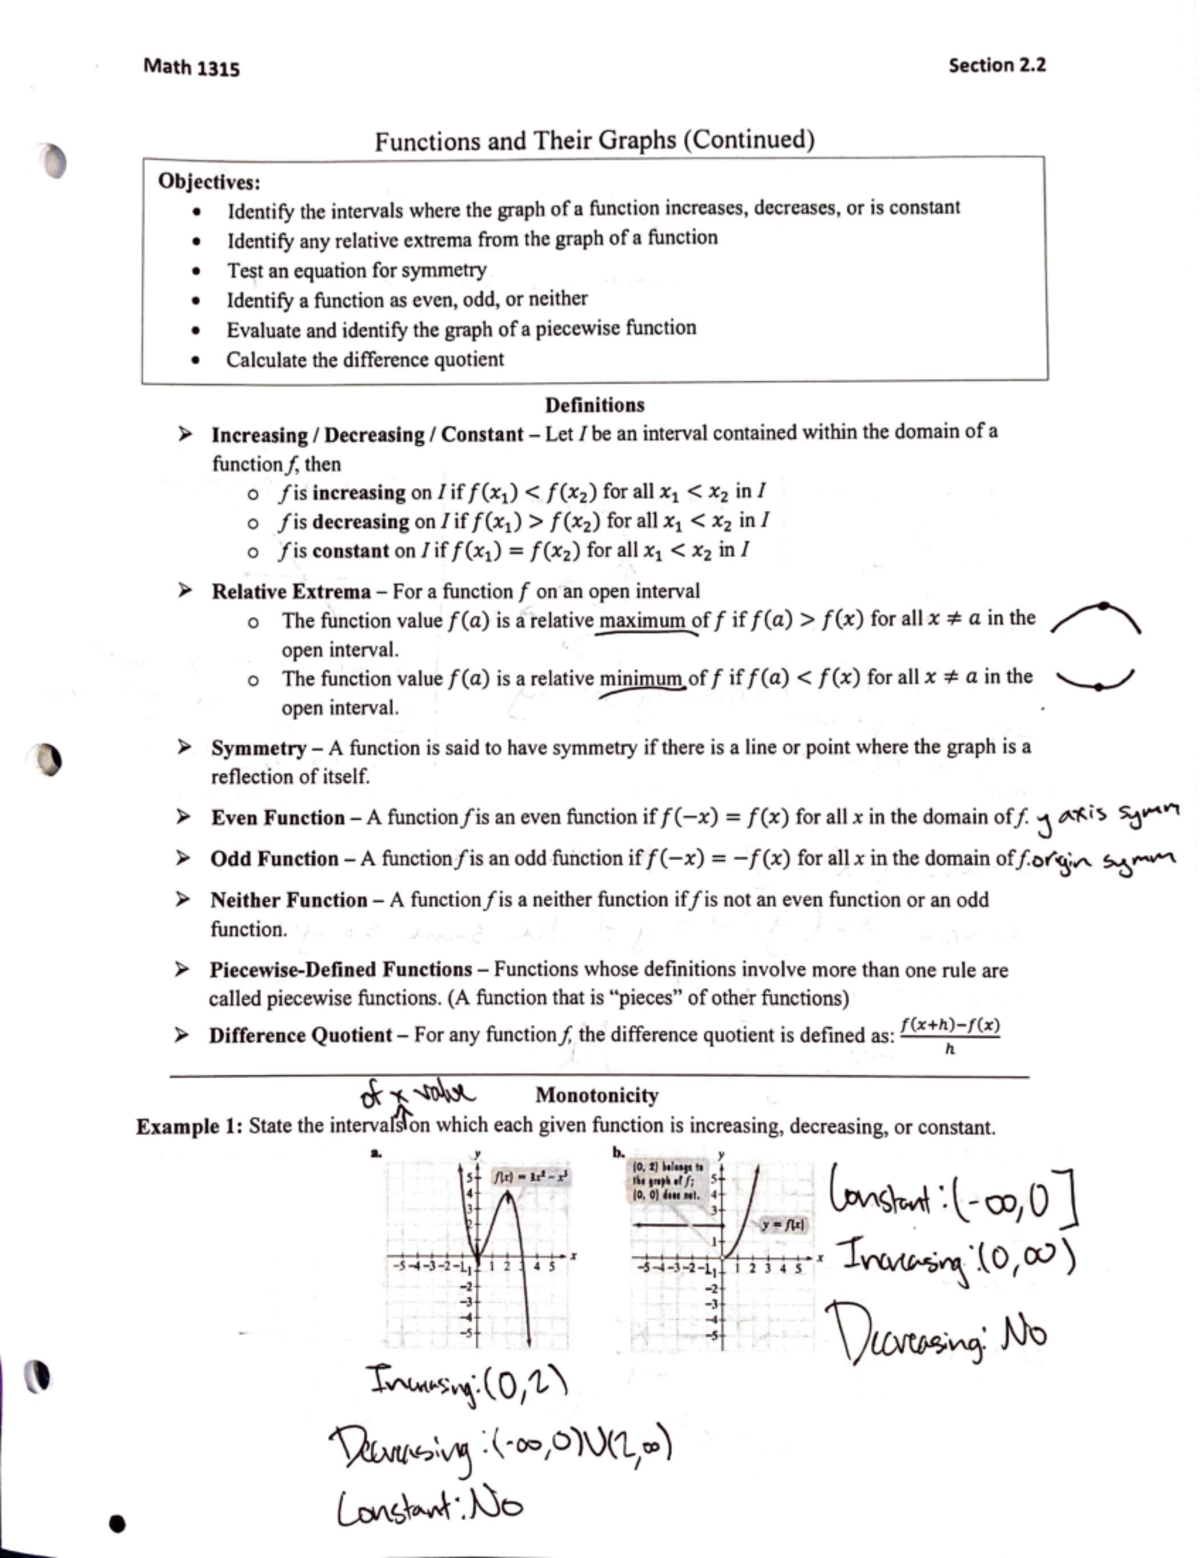 Math 1315
Section 2.2
Functions and Their Graphs (Continued)
Objectives:
• Identify the intervals where the graph of a function increases, decreases, or is constant
• Identify any relative extrema from the graph of a function
• Test an equation for symmetry
• Identify a function as even, odd, or neither
• Evaluate and identify the graph of a piecewise function
• Calculate the difference quotient
Definitions
➤ Increasing / Decreasing / Constant – Let I be an interval contained within the domain of a
function f, then
o f is increasing on I if f(x₁) < f(x₂) for all x₁ < x₂ in I
o f is decreasing on I if f(x₁) > f(x₂) for all x₁ < x₂ in I
o f is constant on I if f(x₁) = f(x₂) for all x₁ < x₂ in I
➤ Relative Extrema – For a function f on an open interval
o The function value f(a) is a relative maximum of f if f(a) > f(x) for all x ≠ a in the
open interval.
o The function value f(a) is a relative minimum of f if f(a) < f(x) for all x ≠ a in the
open interval.
➤ Symmetry – A function is said to have symmetry if there is a line or point where the graph is a
reflection of itself.
➤ Even Function – A function f is an even function if f(−x) = f(x) for all x in the domain of f. y axis symm
➤ Odd Function – A function f is an odd function if f(−x) = −f(x) for all x in the domain of f. origin symm
➤ Neither Function – A function f is a neither function if f is not an even function or an odd
function.
➤ Piecewise-Defined Functions – Functions whose definitions involve more than one rule are
called piecewise functions. (A function that is “pieces” of other functions)
➤ Difference Quotient – For any function f, the difference quotient is defined as: f(x+h)−f(x)
h
of x value
Monotonicity
Example 1: State the intervals on which each given function is increasing, decreasing, or constant.
a.
y
f(x) = 3x² − x³
5
4
3
2
-5 -4 -3 -2 -1 1 2 3 4 5 x
-2
-3
-4
-5
Increasing: (0,2)
Decreasing: (-∞,0)∪(2,∞)
Constant: No
b.
y
(0, 2) belongs to
the graph of f;
(0, 0) does not.
5
4
3
y = f(x)
1
-5 -4 -3 -2 -1 1 2 3 4 5 x
-2
-3
-4
-5
Constant: (-∞,0]
Increasing: (0,∞)
Decreasing: No